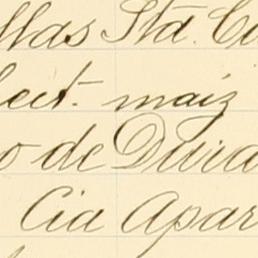 llas Sta. Cr
lect. maiz
o de Dura
Cia Apar